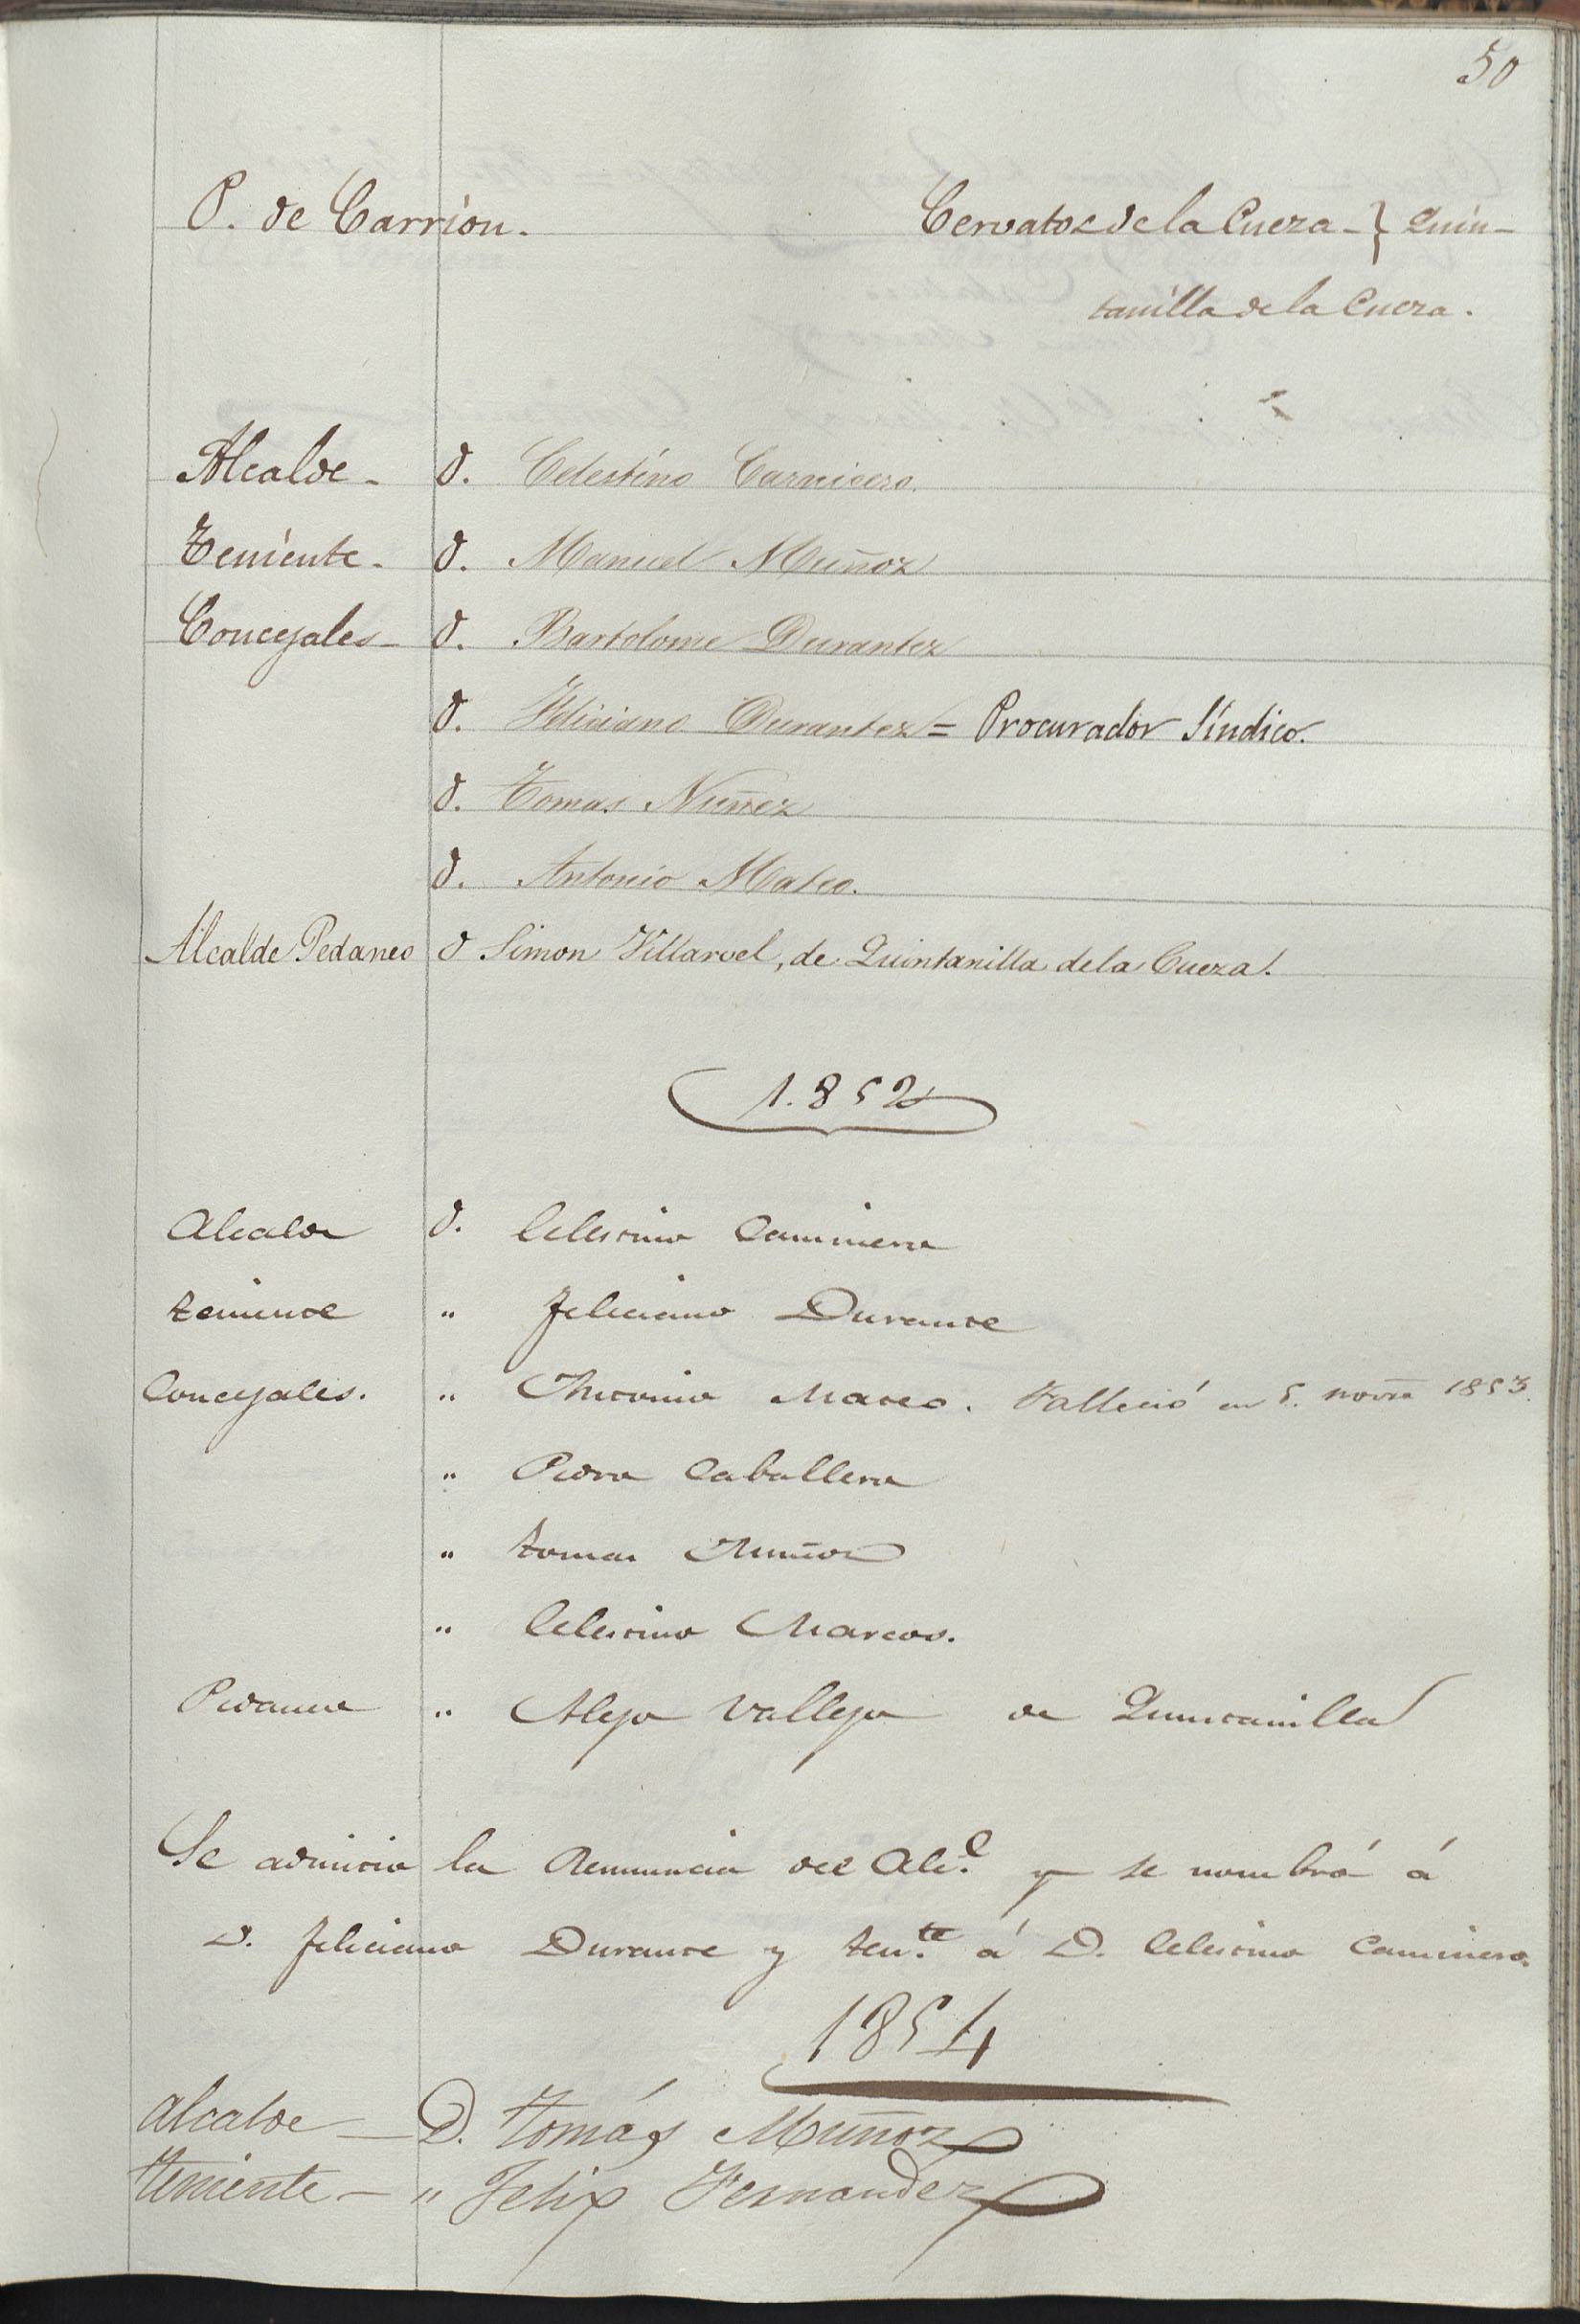 50
P. de Carrion. Cervatos de la Cueza - } Quin-
tanilla de la Cueza.
Alcalde - D. Celestino Carnicero.
Teniente - D. Manuel Muñoz
Concejales - D. Bartolome Durantez
D. Feliciano Durantez = Procurador Síndico.
D. Tomas Nuñez
D. Antonio Mateo.
Alcalde Pedaneo D Simon Villaroel, de Quintanilla de la Cueza.
1.852
Alcalde D. Celestino Caminero
teniente " Feliciano Durante
Concejales. " Antonio Mateo. Falleció en 5. novre 1853.
" Pedro Caballero
" tomas Muñoz
" Celestino Marcos.
Pedaneo " Alejo Vallejo de Quintanilla
Se admitió la Renuncia del Alc.e y se nombró á
D. Feliciano Durante y ten.te á D. Celestino Caminero.
1854
alcalde — D. tomás Muñoz
teniente — " Felix Fernandez